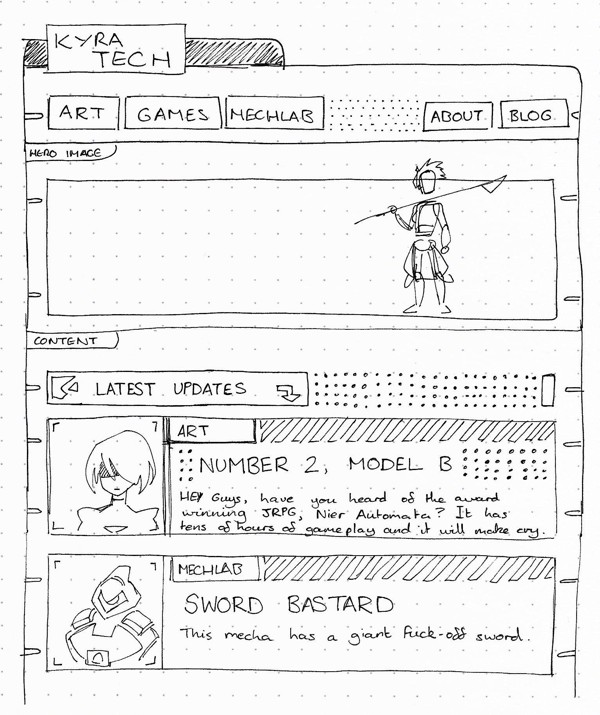 KYRA
TECH
ART
GAMES
MECHLAB
ABOUT
BLOG
HERO IMAGE
CONTENT
LATEST UPDATES
ART
NUMBER 2, MODEL B
HEY Guys, have you heard of the award
winning JRPG, Nier Automata? It has
tens of hours of gameplay and it will make cry.
MECHLAB
SWORD BASTARD
This mecha has a giant fuck-off sword.